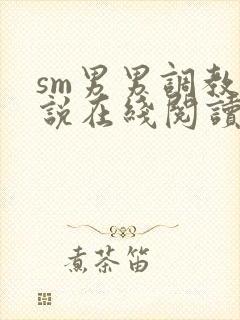 sm男男調教
説在綫閱讀
煮茶笛